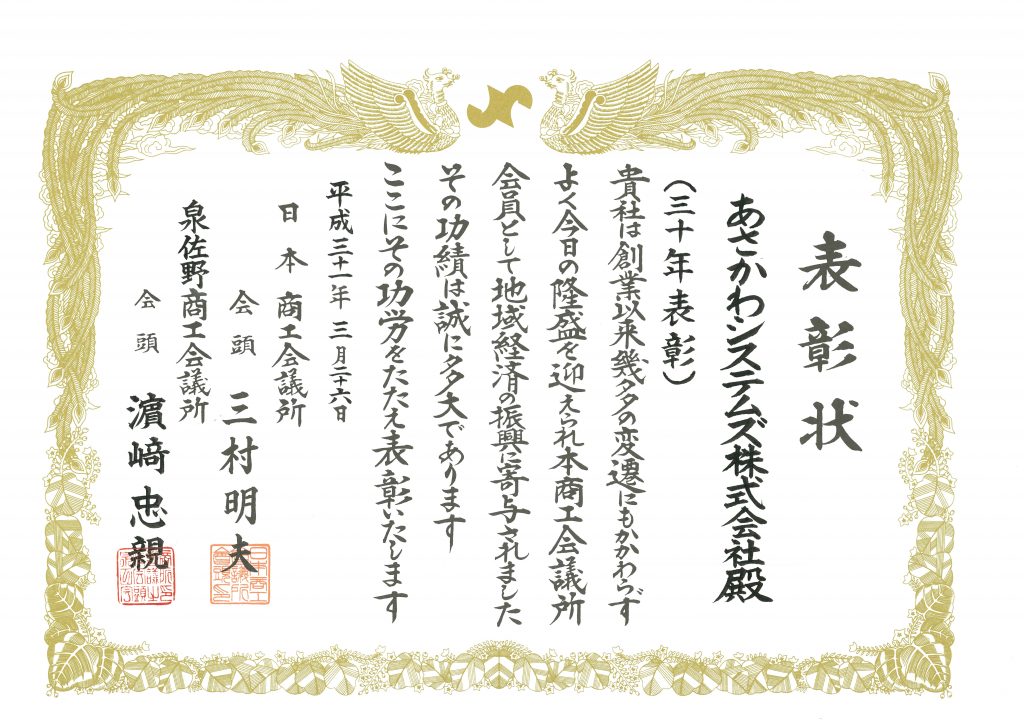 表彰状
あさかわシステムズ株式会社殿
(三十年表彰)
貴社は創業以来幾多の変遷にもかかわらず
よく今日の隆盛を迎えられ本商工会議所
会員として地域経済の振興に寄与されました
その功績は誠に多大であります
ここにその功労をたたえ表彰いたします
平成三十一年三月二十六日
日本商工会議所
会頭 三村明夫
泉佐野商工会議所
会頭 濵﨑忠親